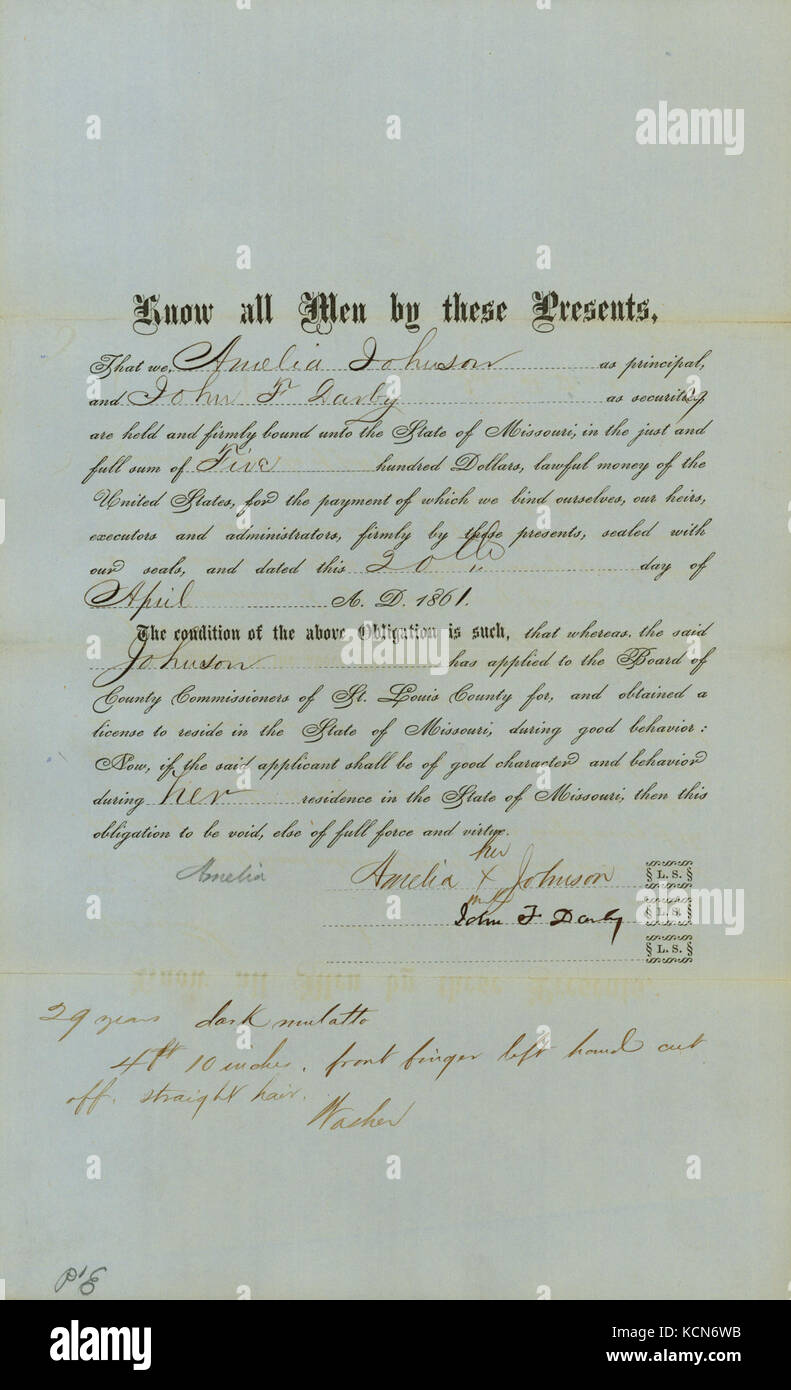 Know all Men by these Presents,
That we, Amelia Johnson as principal,
and John F Darby as security,
are held and firmly bound unto the State of Missouri, in the just and
full sum of Five hundred Dollars, lawful money of the
United States, for the payment of which we bind ourselves, our heirs,
executors and administrators, firmly by these presents, sealed with
our seals, and dated this 20th day of
April A. D. 1861.
The condition of the above Obligation is such, that whereas, the said
Johnson has applied to the Board of
County Commissioners of St. Louis County for, and obtained a
license to reside in the State of Missouri, during good behavior:
Now, if the said applicant shall be of good character and behavior
during her residence in the State of Missouri, then this
obligation to be void, else of full force and virtue.
her
Amelia Amelia X Johnson L. S.
mark
John F Darby L. S.
L. S.
29 years dark mulatto
4 ft 10 inches. front finger left hand cut
off. straight hair.
Washer
alamy
alamy
Image ID: KCN6WB
www.alamy.com